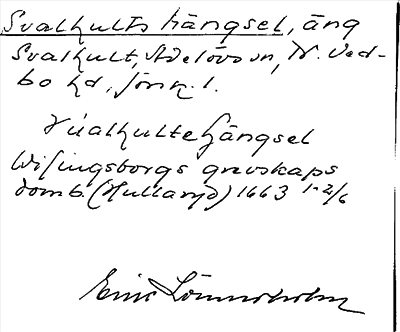 Svalhults hängsel, äng
Svalhult, Adelövs sn, N. Ved-
bo hd, Jönk. l.
Sualhulte Hängsel
Wisingsborgs grevskaps
domb. (Hultaryd) 1663 1-2/6
Eric Lönnsholm